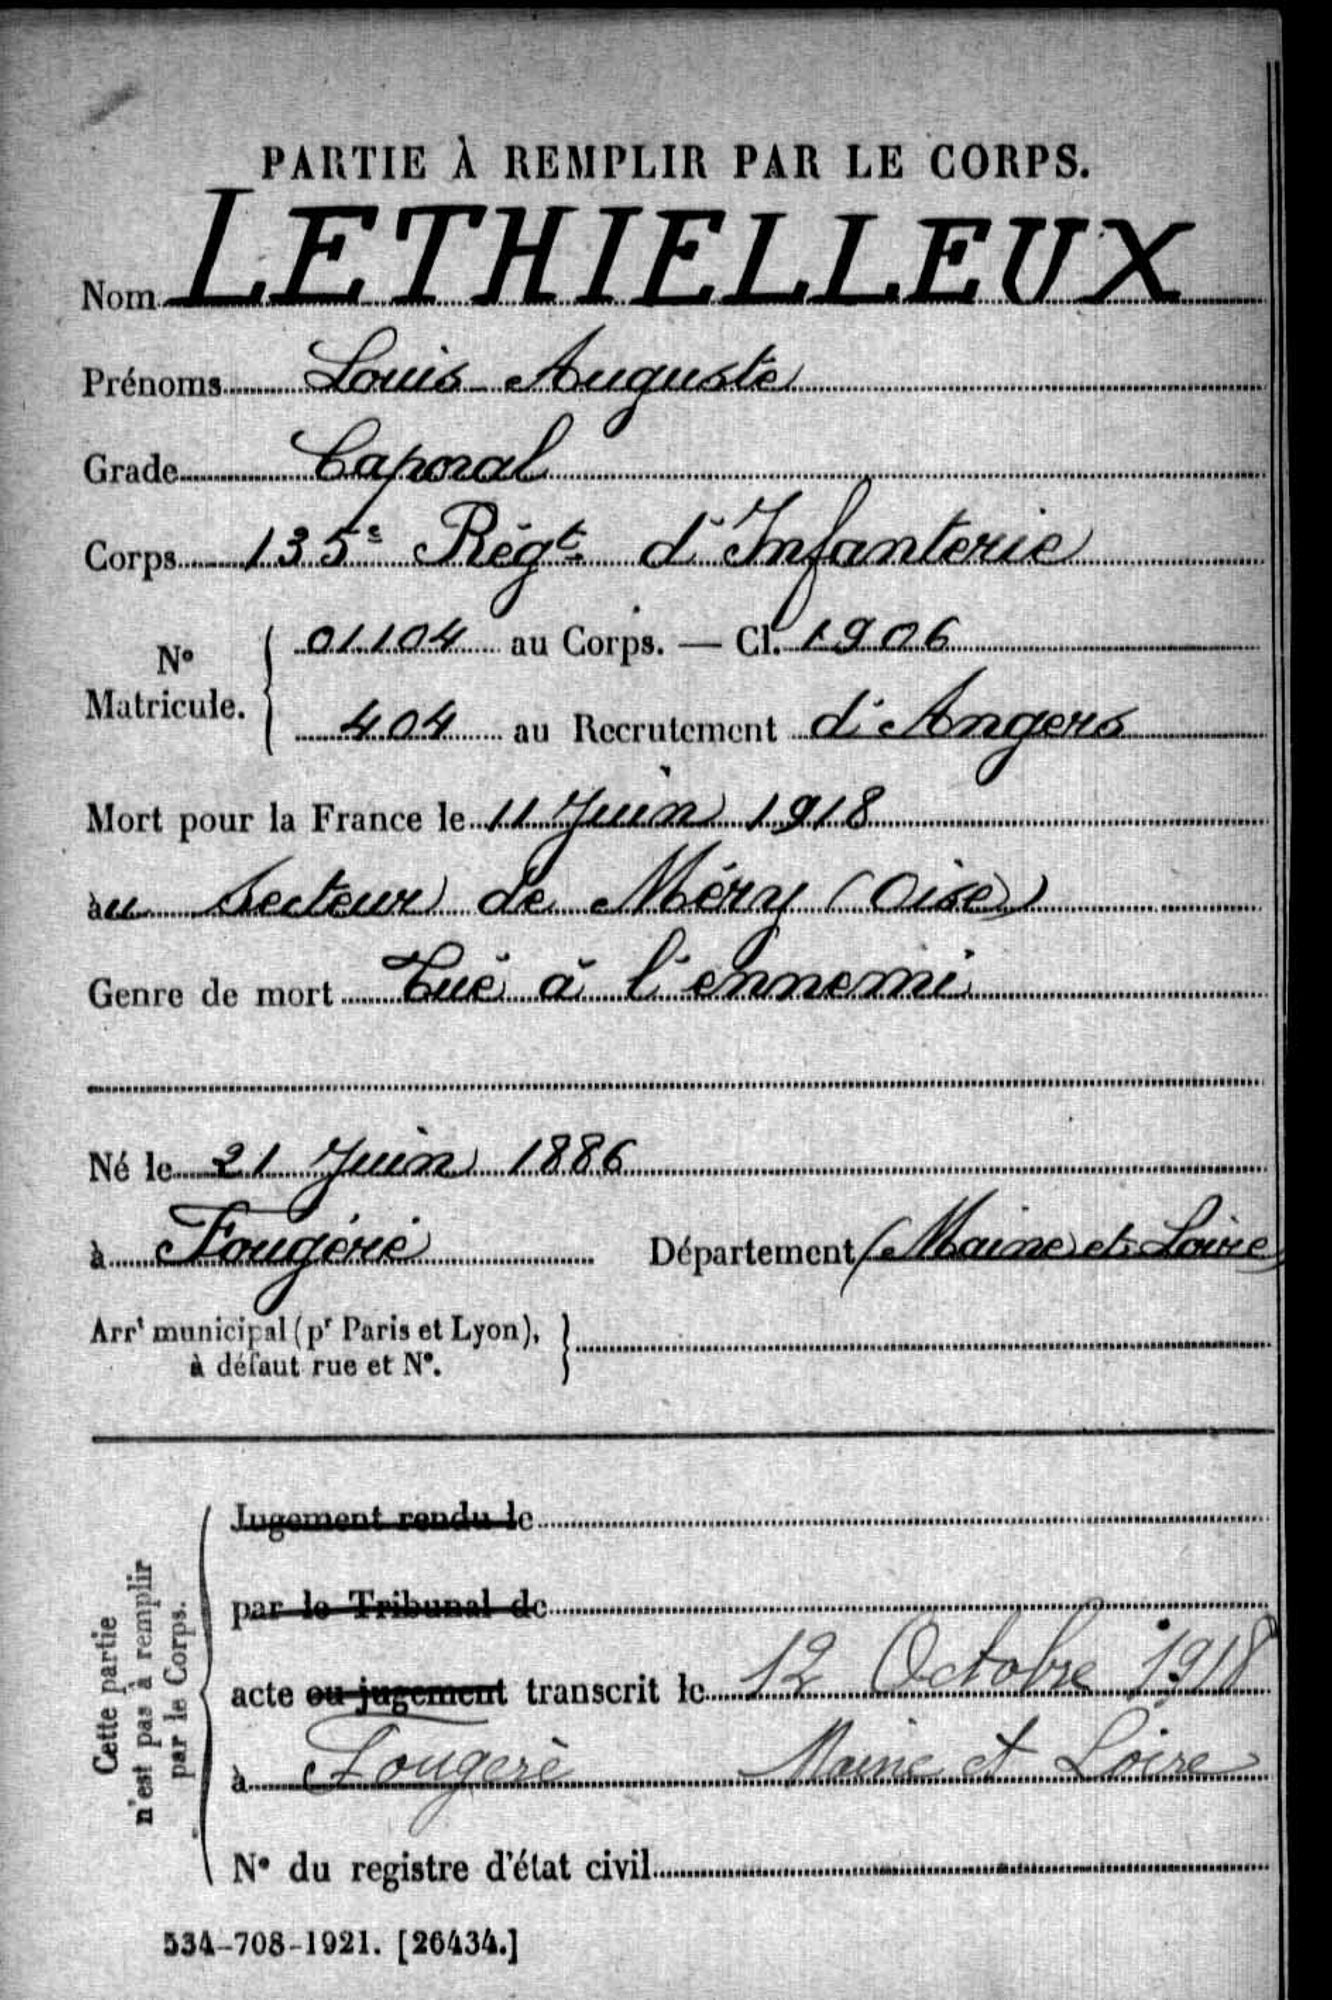 PARTIE À REMPLIR PAR LE CORPS.
Nom LETHIELLEUX
Prénoms Louis Auguste
Grade Caporal
Corps 135e Régt d'Infanterie
No Matricule. { 01104 au Corps. — Cl. 1906
404 au Recrutement d'Angers
Mort pour la France le 11 Juin 1918
au Secteur de Méry (Oise)
Genre de mort Tué à l'ennemi
Né le 21 Juin 1886
à Fougeré Département (Maine et Loire)
Arrt municipal (pr Paris et Lyon), }
à défaut rue et No.
Cette partie
n'est pas à remplir
par le Corps.
Jugement rendu le
par le Tribunal de
acte ou jugement transcrit le 12 Octobre 1918
à Fougeré Maine et Loire
No du registre d'état civil
534-708-1921. [26434.]